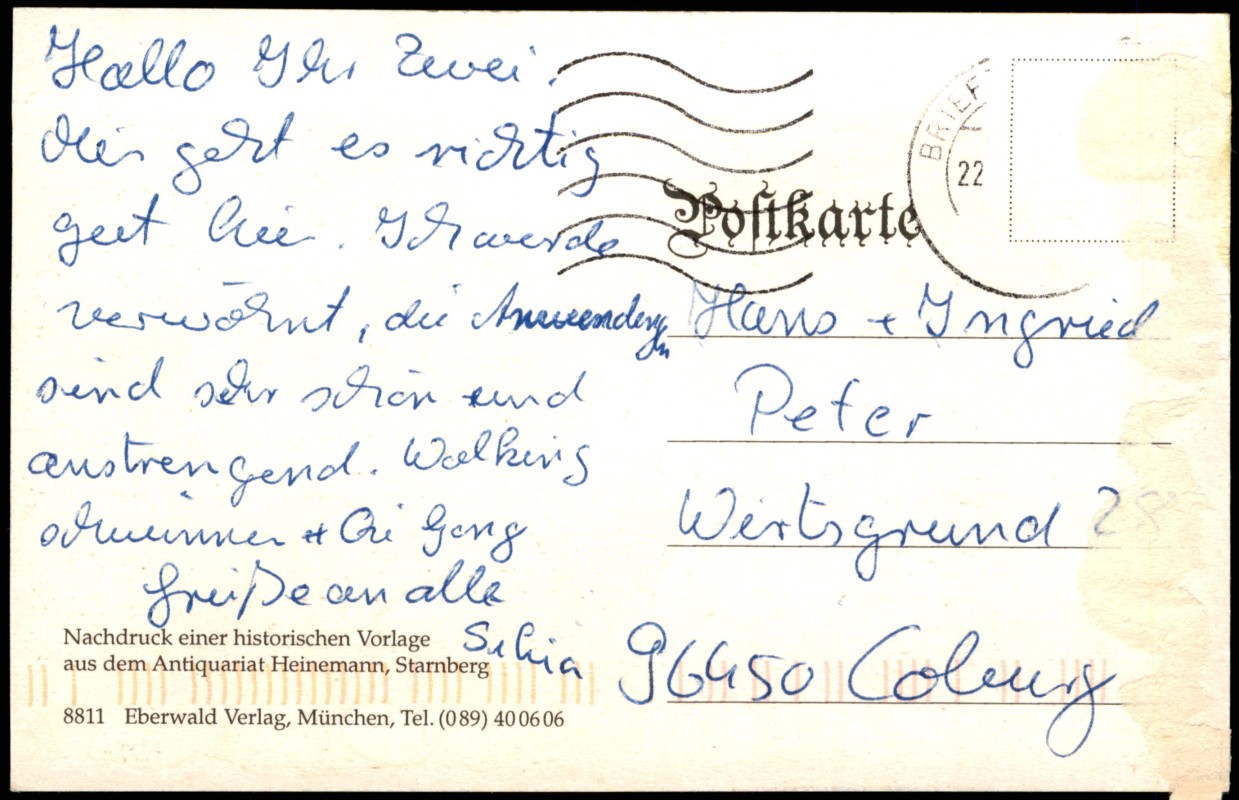 Hallo Ihr Zwei.
Mir geht es richtig
gut hier. Ich werde
verwöhnt, die Anwendungen
sind sehr schön und
anstrengend. Walking
schwimmen + Chi Gong
Grüße an alle
BRIEF
22
Postkarte
Hans + Ingried
Peter
Wirtsgrund 28
96450 Coburg
Nachdruck einer historischen Vorlage
aus dem Antiquariat Heinemann, Starnberg
8811 Eberwald Verlag, München, Tel. (089) 400606